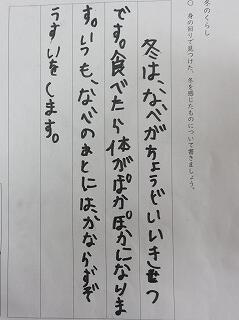 冬のくらし
○ 身の回りで見つけた、冬を感じたものについて書きましょう。
冬は、なべがちょうどいいきせつ
です。食べたら体がぽかぽかになりま
す。いつも、なべのあとにはかならずぞ
うすいをします。